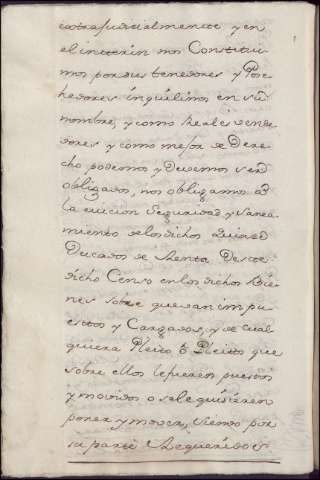 extrajudicialmente y en
el interin nos Constitui-
mos por sus tenedores y Pose-
hedores inquilinos en su
nombre, y como Reales vende-
dores y como mejor de Dere-
cho, podemos y Devemos ser
obligados, nos obligamos a
la eviccion Seguridad y Sanea-
miento de los dichos
Ducados de Renta Deste
dicho Censo en los dichos Bie-
nes sobre que van impu-
esttos y Cargados, y de cual-
quiera Pleito o Pleitos que
sobre ellos le fueren puestos
y movidos o se le quisieren
poner y mover, siendo por
su parte Requeridos